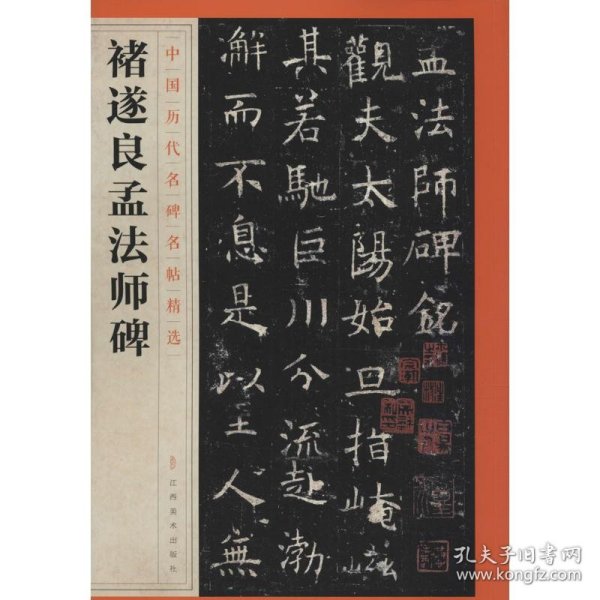 褚遂良孟法师碑
中国历代名碑名帖精选
江西美术出版社
孟法師碑銘
觀夫太陽始旦指崦嵫
其若馳巨川分流赴渤
澥而不息是以至人無
孔夫子旧书网
www.kongfz.com